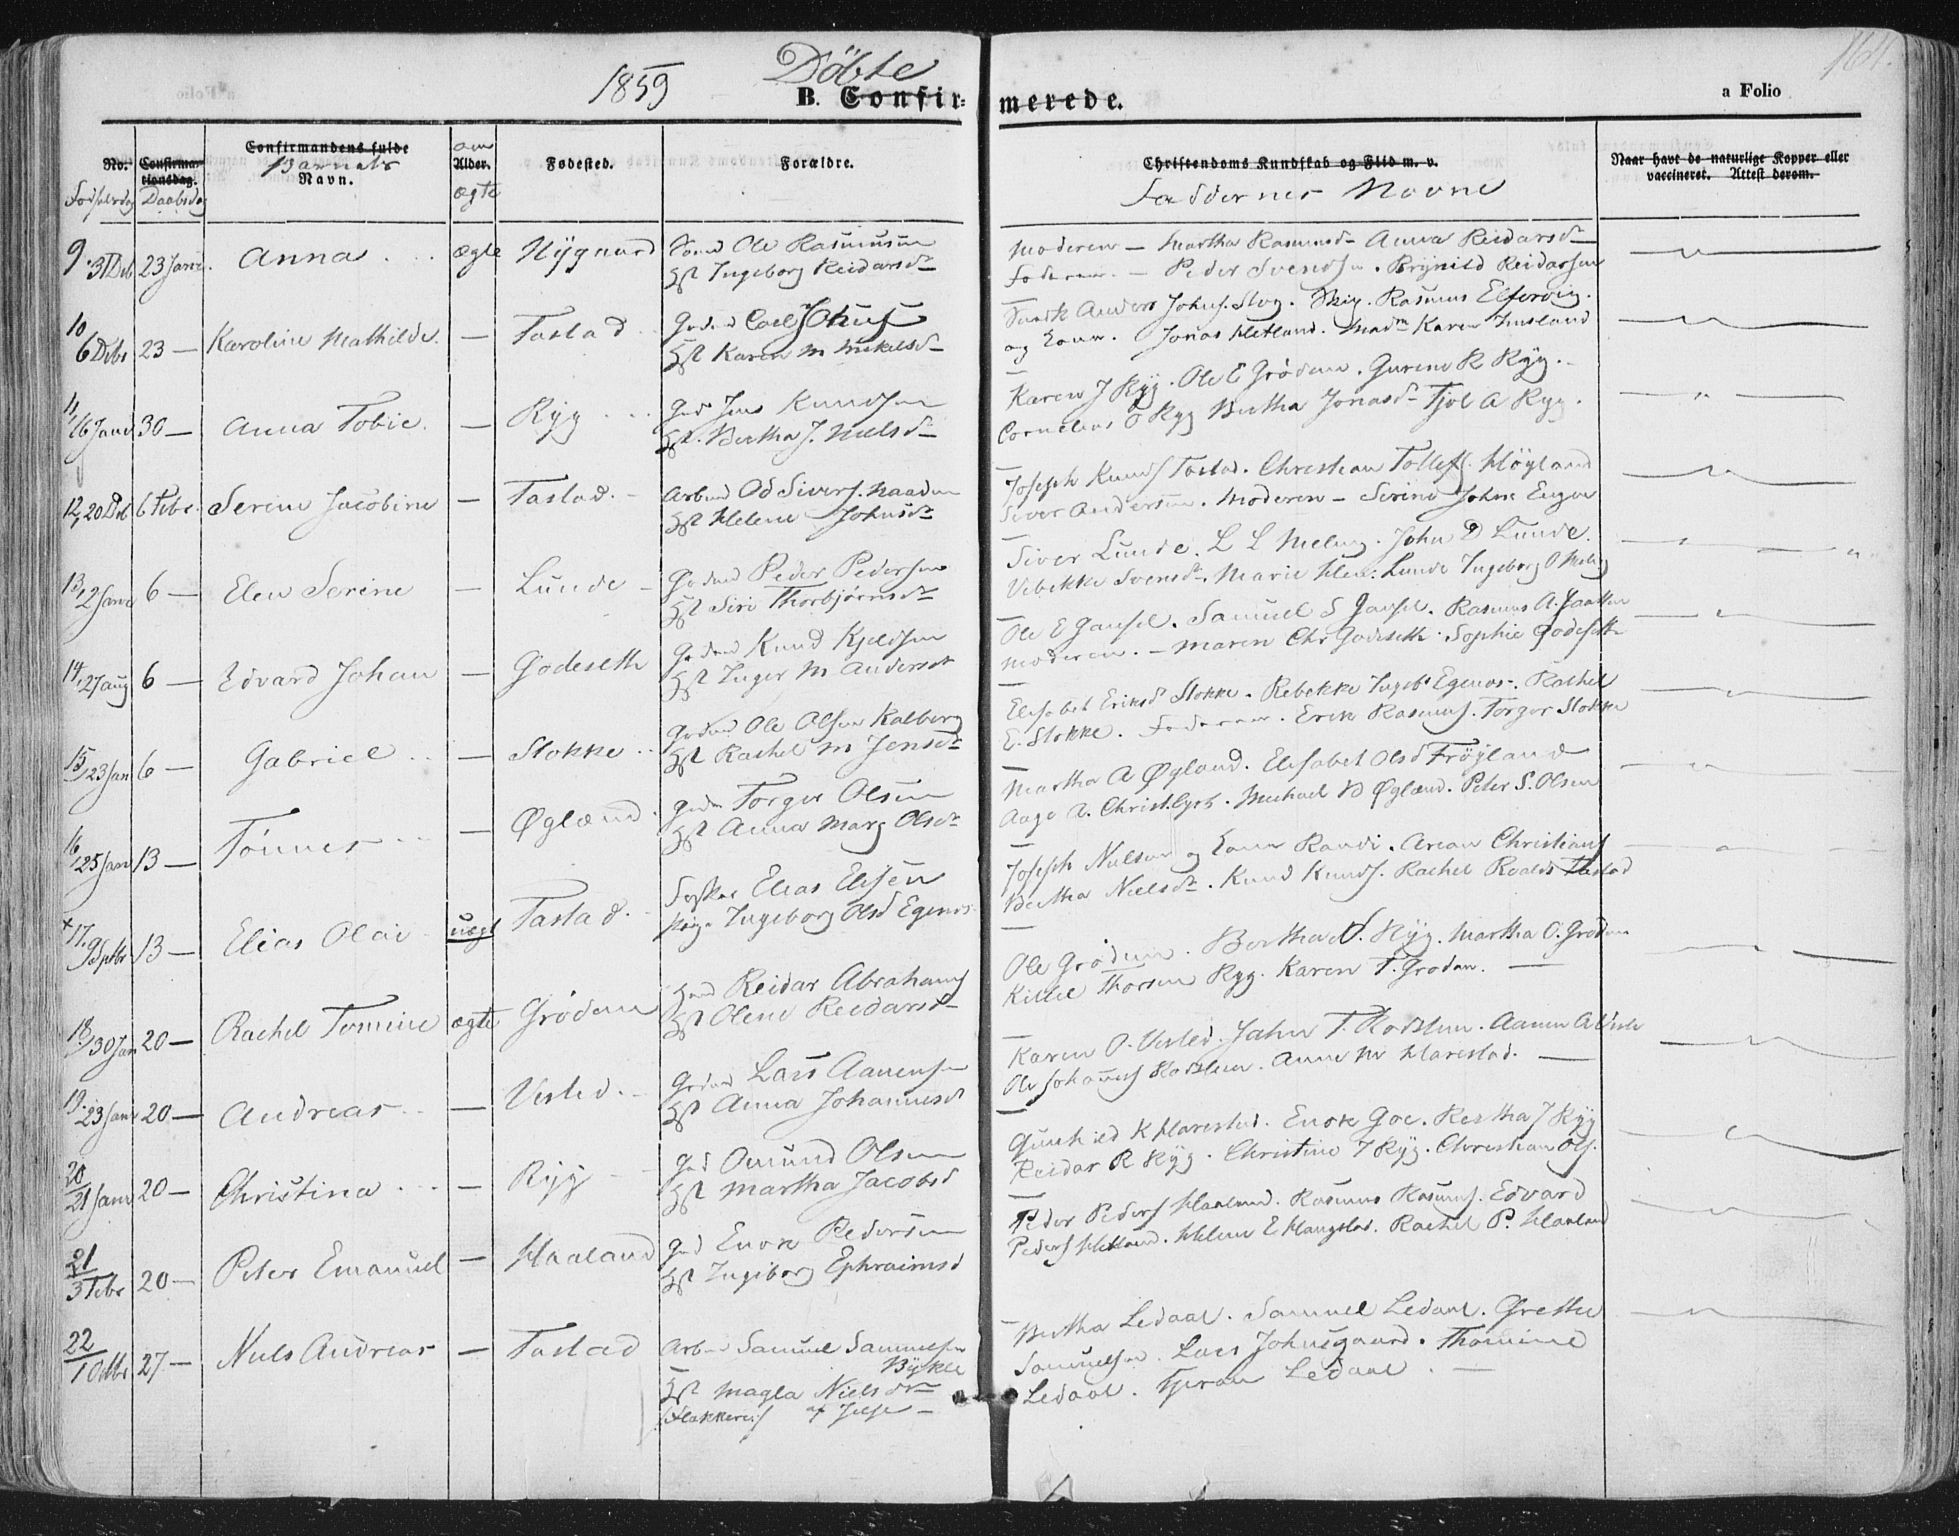 1859
Döbte
164.
B. Confirmerede.
a Folio
No.
Confirmationsdag.
Confirmandens fulde Navn.
Alder.
Fødested.
Forældre.
Christendoms Kundskab og Flid m. v.
Naar havt de naturlige Kopper eller vaccineret. Attest derom.
Fødselsdag
Daabsdag
Barnets
om ægte
Faddernes Navne
9. 31 Deb 23 Janr. Anna ægte Nygaard
Ole Rasmussen
Ingeborg Reidarsd
Moderen — Martha Rasmusd Anna Reidarsd
Faderen. — Peder Svends. Brynild Reidarsen
10 6 Debr 23 — Karoline Mathilde. — Tastad
Karen M Mikelsd
og Kone. Jonas Hetland. Madm Karen Imsland
11 16 Janr 30 — Anna Tobie. — Ryg
Gd Jens Knudsen
Bertha J. Nielsd
Karen J Ryg. Ole E Grödem. Gurene R Ryg.
Cornelius O Ryg Bertha Jonasd Tjöl A Ryg.
12, 20 Deb 6 Febr. Serine Jacobine — Tastad.
Helene Johnsd
Joseph Knuds Tastad. Christian Tollefs. Höyland
Siver Andersen. Moderen — Serine Johne Enger
13, 2 Janr 6 — Elen Serine — Lunde
Peder Pedersen
Siri Thorbjörnsd
Siver Lunde. L L Meling. John D Lunde.
Vibekke Svensd. Marie Hen: Lunde Ingeborg O Meling
14, 27 Aug 6 — Edvard Johan — Godeseth
Knud Kjeldsen
Inger M Andersd
Ole E Gausel. Samuel S Gausel. Rasmus A. Paatten
Moderen. — Maren Chr Godeseth. Sophie Godeseth
15 23 Jan 6 — Gabriel — Stokke
Ole Olsen Kalberg
Rachel M Jensd
Elisabet Eriksd Stokke. Rebekke Ingeb Egenes. Rachel
E. Stokke. Faderen. Erik Rasmus. Torger Stokke
16 25 Janr 13 — Tönnes — Øglænd
Torger Olsen
Anna Marg Olsd
Martha A Øgland. Elisabet Olsd Fröyland
Aage A. Christ. Michael B Øglænd. Peter S. Olsen
17. 9 Sptbr 13 — Elias Olai uægt Tastad.
Elias Elisen
Pige Ingeborg Olsd Egenes
Joseph Nielsen og Kone Randi. Arian Christians
Bertha Nielsd. Knud Knuds. Rachel Roalds Tastad
18 30 Jan 20 — Rachel Tomine ægte Grödem
Reidar Abrahams
Olene Reidarsd
Ole Grödem. Bertha O. Ryg. Martha O. Grödem
Kittel Thorsen Ryg. Karen T. Grodem. —
19. 23 Janr 20 — Andreas — Vistad.
Lars Aanensen
Anna Johannesd
Karen O. Visted. Jahn T. Rosslun. Aanen A Viste
Ole Johannes Rosslun. Anne M Harestad. —
20 21 Janr 20 — Christina — Ryg
Omund Olsen
Martha Jacobsd
Gunhild K Harestad. Enok Goe. Bertha J Ryg
Reidar R Ryg. Christine T Ryg. Christian Ols.
21 3 Febr 20 — Peter Emanuel — Haaland
Enok Pedersen
Ingiborg Ephraimsd
Peder Peders Haaland. Rasmus Rasmus. Edvard
Peders Hetland. Helene E Haugstad. Rachel P. Haaland
22 1 Octbr 27 — Niels Andreas — Tastad
Samuel Samuelsen
Bykle
Magla Nielsdr
af Jelse —
Bertha Ledaal. Samuel Ledaal. Grethe
Samuelsen. Lars Johnsgaard. Thomine
Ledaal. Tjeran Ledaal. —